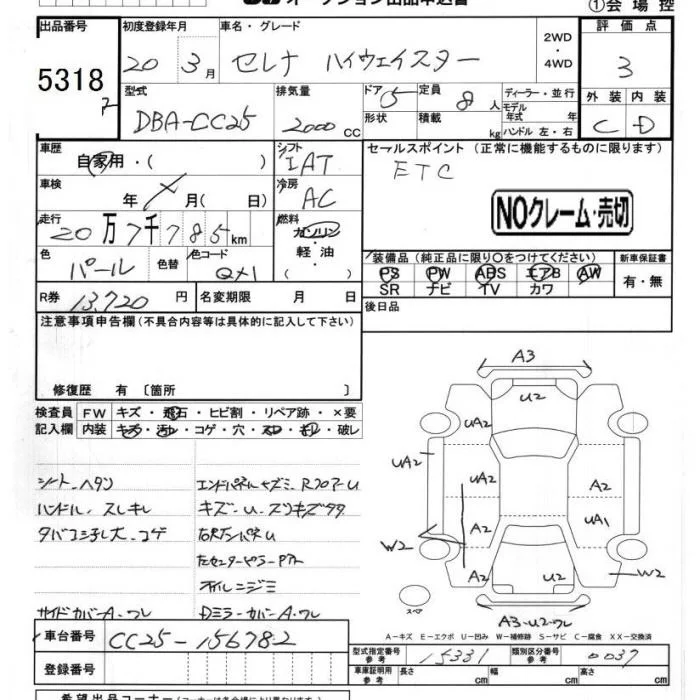 ①会場控
出品番号
5318
初度登録年月
20 3月
車名・グレード
セレナ ハイウェイスター
2WD
・
4WD
評価点
3
外装 内装
C D
型式
DBA-CC25
排気量
2000 cc
ドア 5
形状
定員 8 人
積載 kg
ディーラー・並行
モデル
年式 年
ハンドル 左・右
車歴
自家用・( )
シフト
IAT
セールスポイント (正常に機能するものに限ります)
ETC
車検
年 月( 日)
冷房
AC
NOクレーム・売切
走行
20万7千785km
燃料
ガソリン
軽油
( )
色
パール
色替
色コード
QX1
装備品 (純正品に限り○をつけてください)
PS PW ABS エアB AW
SR ナビ TV カワ
新車保証書
有・無
R券 13,720 円
名変期限 月 日
後日品
注意事項申告欄 (不具合内容等は具体的に記入して下さい)
修復歴 有 〔箇所 〕
検査員
記入欄
FW キズ・飛石・ヒビ割・リペア跡・×要
内装 キズ・汚れ・コゲ・穴・スレ・キレ・破レ
シート ヘタリ
ハンドル スレキレ
タバコ コゲ
サイドカバーA・ワレ
エンドパネル RフロアーU
キズ・U・スリキズ
オイルニジミ
DミラーカバーA・ワレ
A3
U2
UA2
UA2
UA2
A2
A2
UA1
W2
A2
U2
W2
A3・U2・ワレ
スペア
A－キズ E－エクボ U－凹み W－補修跡 S－サビ C－腐食 XX－交換済
車台番号 CC25-156782
登録番号
型式指定番号
参考
15331
類別区分番号
参考
0037
車庫証明用
参考
長さ 幅 高さ
希望出品コーナー